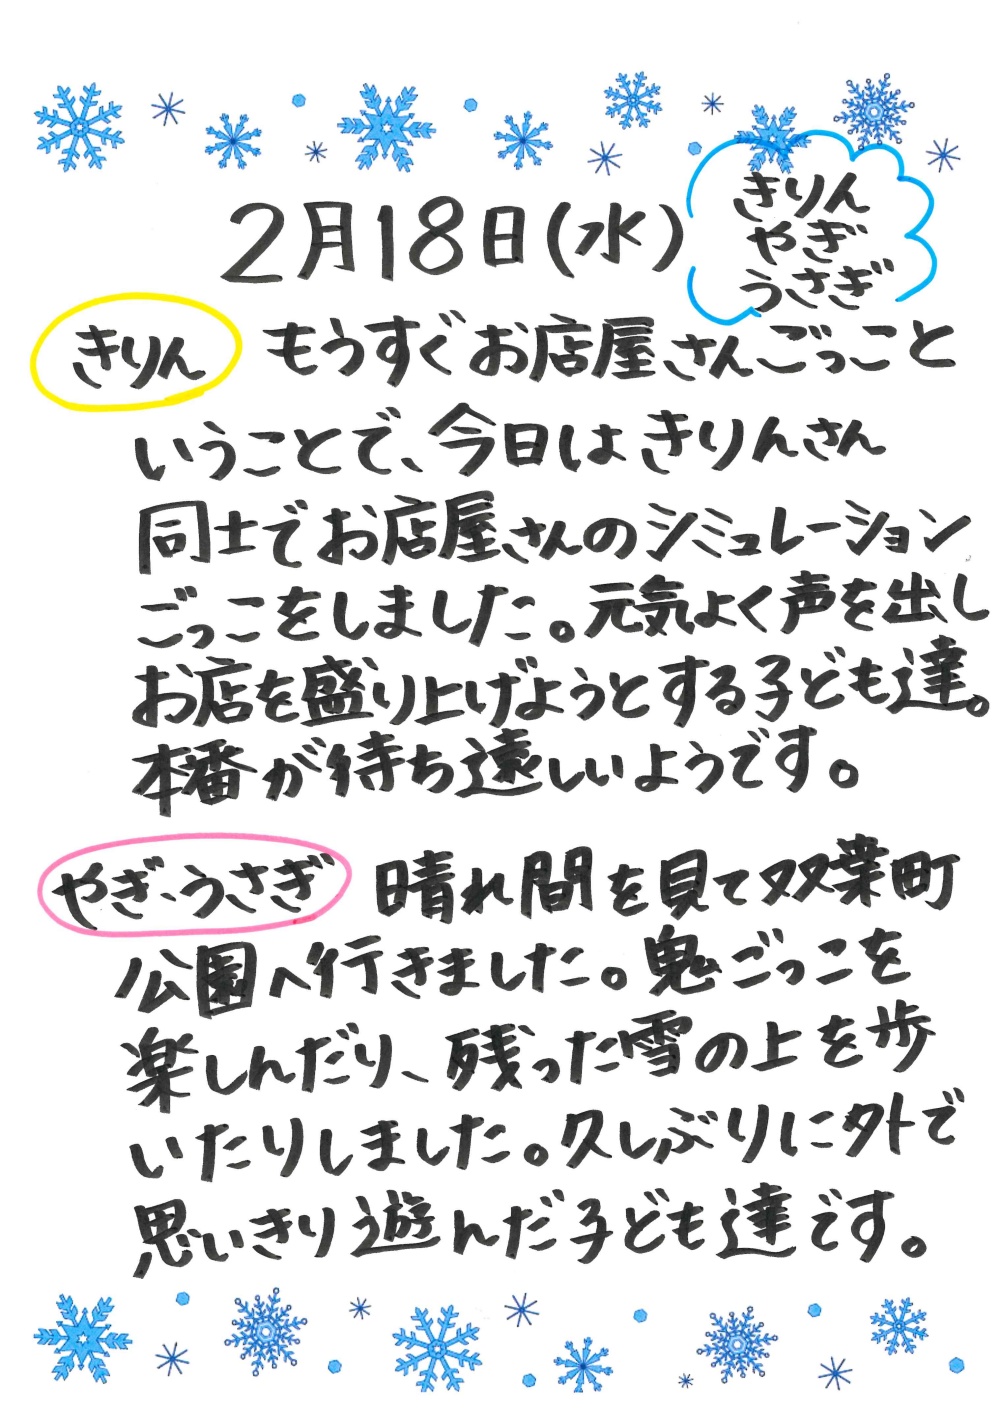 2月18日(水)
きりん
やぎ
うさぎ
きりん もうすぐお店屋さんごっこと
いうことで、今日はきりんさん
同士でお店屋さんのシミュレーション
ごっこをしました。元気よく声を出し
お店を盛り上げようとする子ども達。
本番が待ち遠しいようです。
やぎ、うさぎ 晴れ間を見て双葉町
公園へ行きました。鬼ごっこを
楽しんだり、残った雪の上を歩
いたりしました。久しぶりに外で
思いきり遊んだ子ども達です。